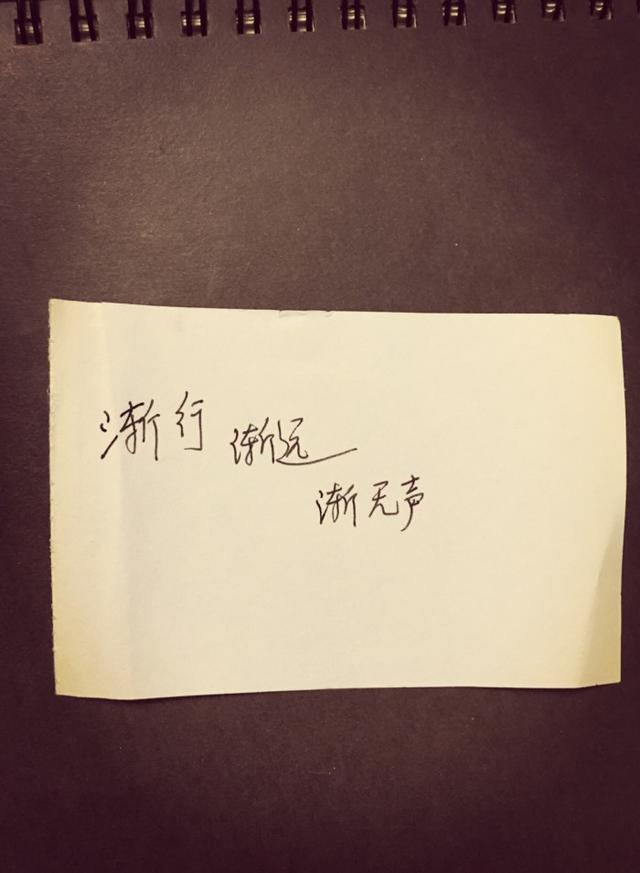 渐行渐远
渐无声